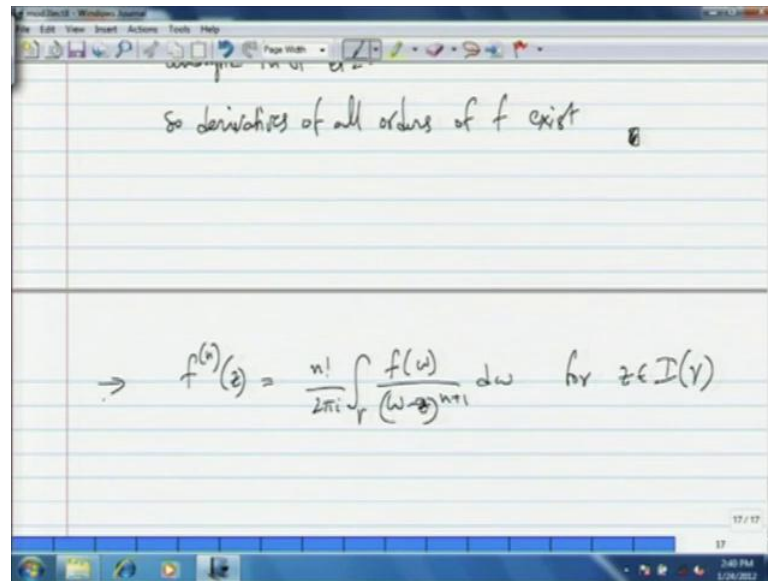 mod2lect8 - Windows Journal
File Edit View Insert Actions Tools Help
Page Width
So derivatives of all orders of f exist
⇒ f^(n)(z) = n!/2πi ∫_γ f(w)/(w-z)^(n+1) dw for z ∈ I(γ)
17 / 17
17
2:40 PM
1/24/2012